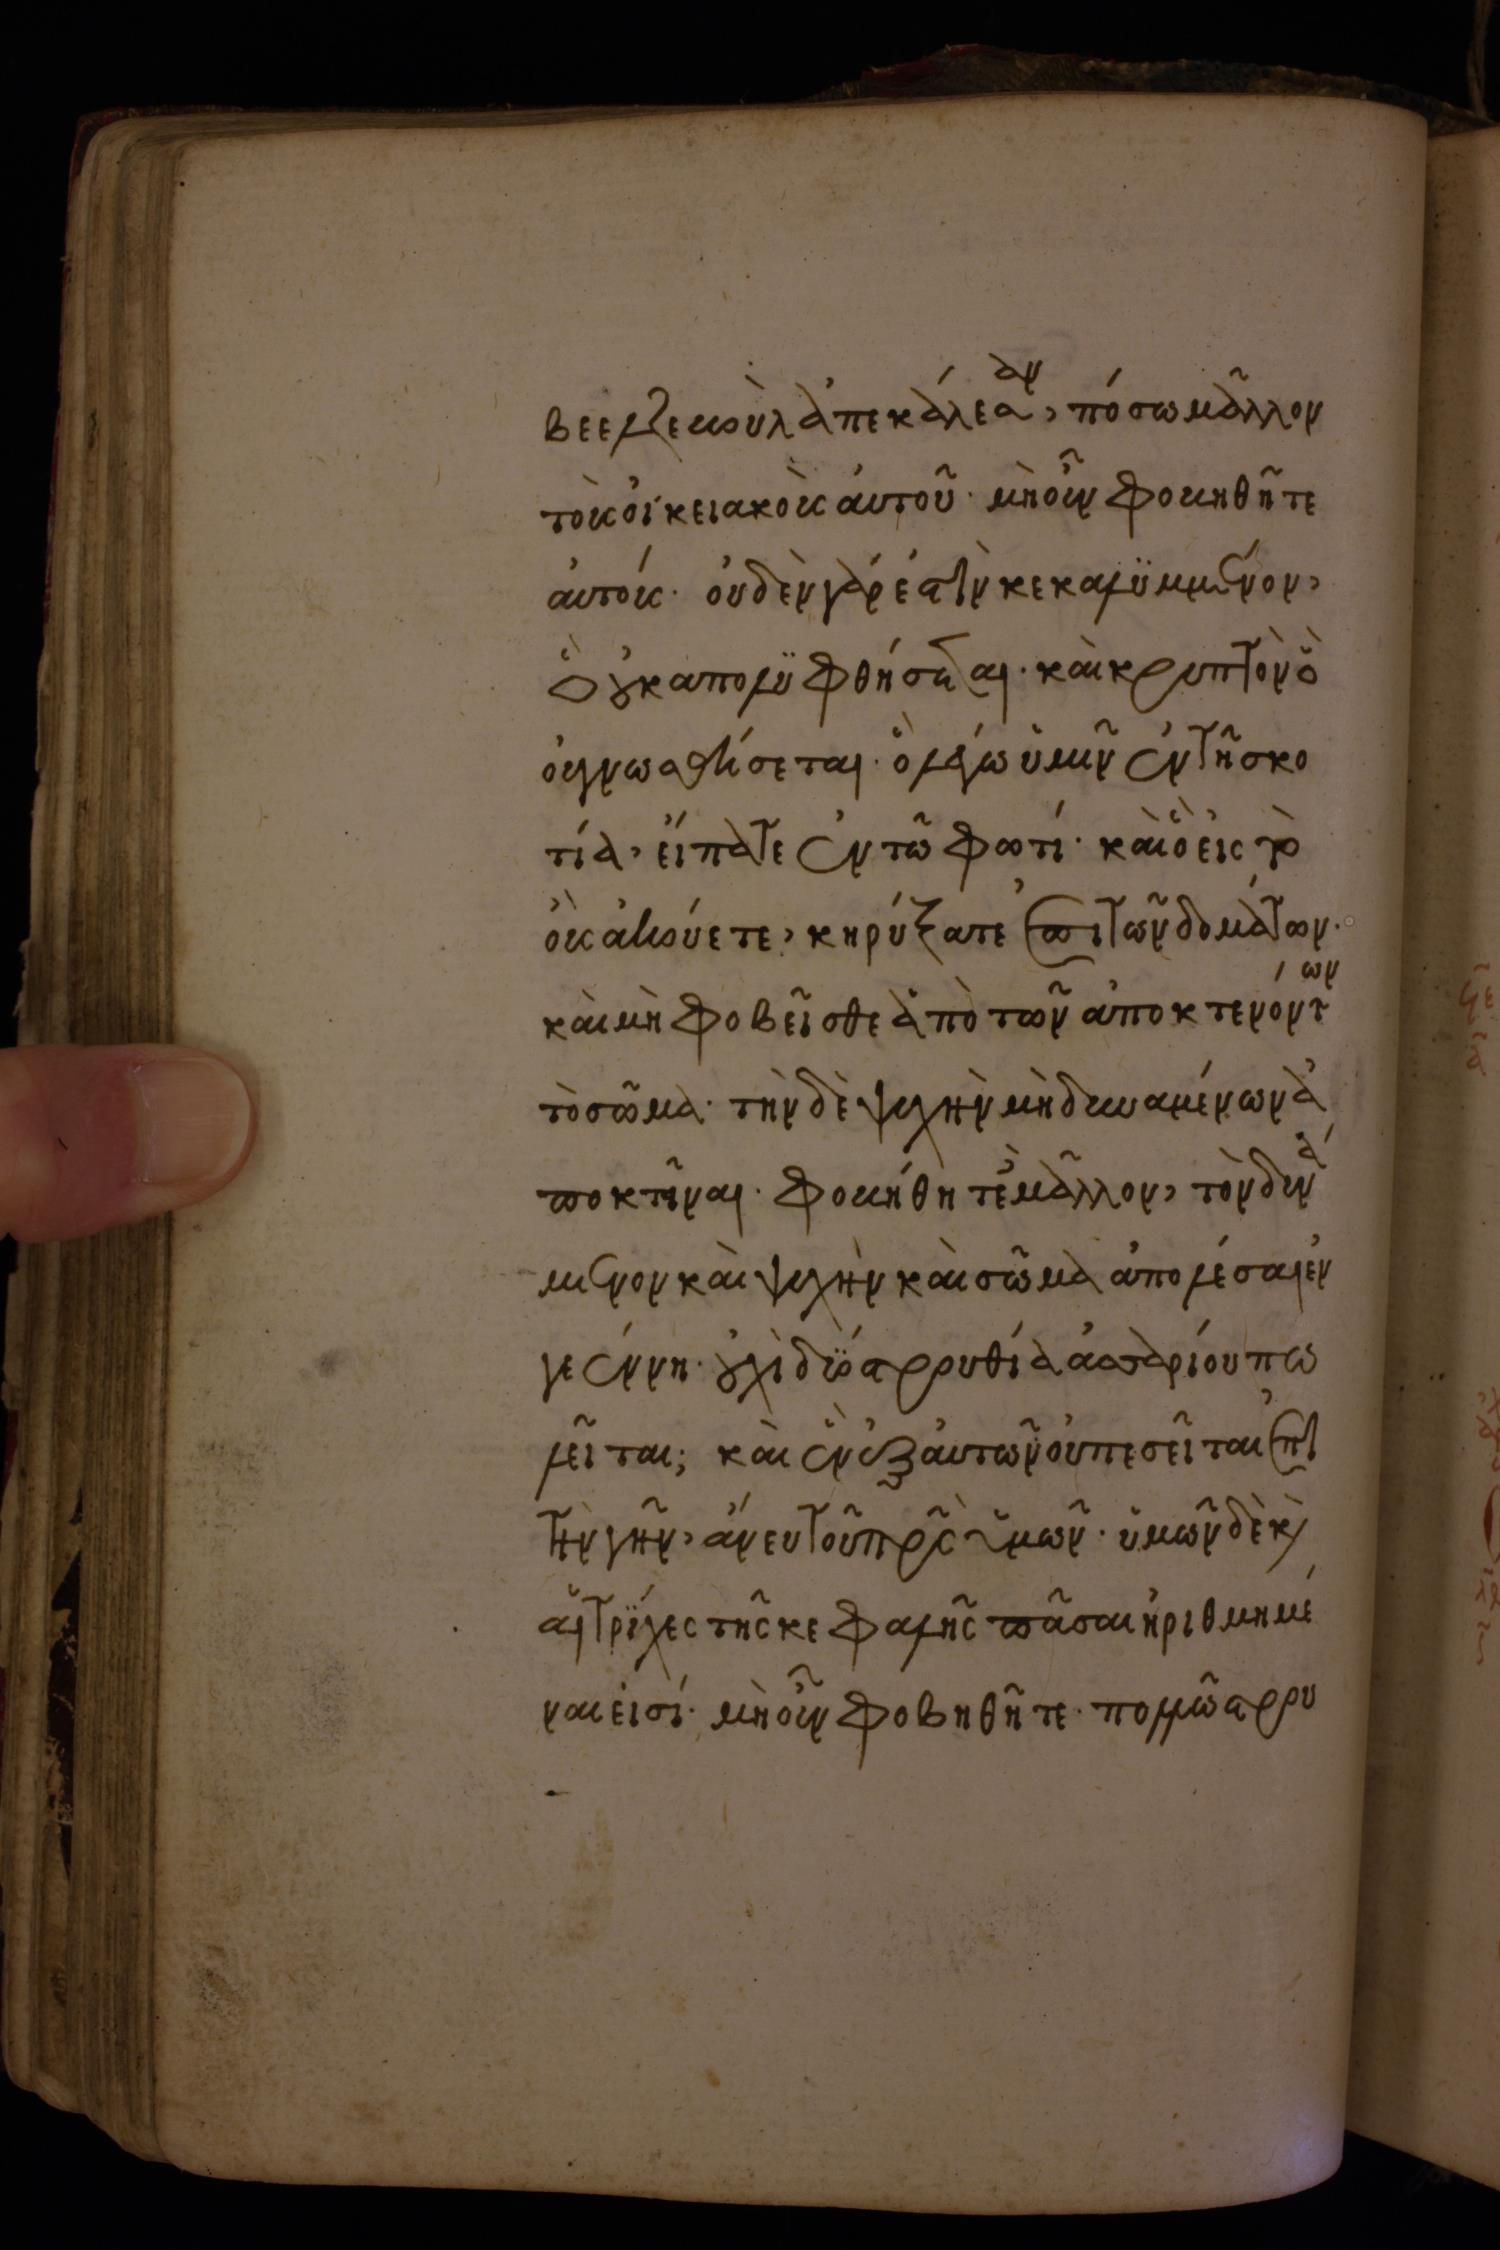 βεελζεβοὺλ ἀπεκάλεσαν, πόσω μᾶλλον
τοὺς οἰκειακοὺς αὐτοῦ· μὴ οὖν φοβηθῆτε
αὐτούς· οὐδὲν γάρ ἐστιν κεκαλυμμένον,
ὃ οὐκ αποκαλυφθήσεται· καὶ κρυπτὸν ὃ
οὐ γνωσθήσεται· ὃ λέγω ὑμῖν ἐν τῆ σκο
τία, εἴπατε ἐν τῶ φωτί· καὶ ὃ εἰς τὸ
οὖς ἀκούετε, κηρύξατε ἐπι τῶν δομάτων·
καὶ μὴ φοβεῖσθε ἀπὸ τῶν ἀποκτενόντων
τὸ σῶμα· τὴν δὲ ψυχὴν μὴ δυναμένων ἀ
ποκτεῖναι· φοβήθητε μᾶλλον, τὸν δυνά
μενον καὶ ψυχὴν καὶ σῶμα ἀπολέσαι ἐν
γεέννη· οὐχὶ δύο στρουθία ἀσσαρίου πω
λεῖται; καὶ ἓν ἐξ αὐτῶν οὐ πεσεῖται ἐπὶ
τὴν γῆν, ἄνευ τοῦ πρς ὑμῶν· ὑμῶν δὲ κ
αἱ τρίχες τῆς κεφαλῆς πᾶσαι ἠριθμημέ
ναι εἰσί· μὴ οὖν φοβηθῆτε· πολλῶ στρου